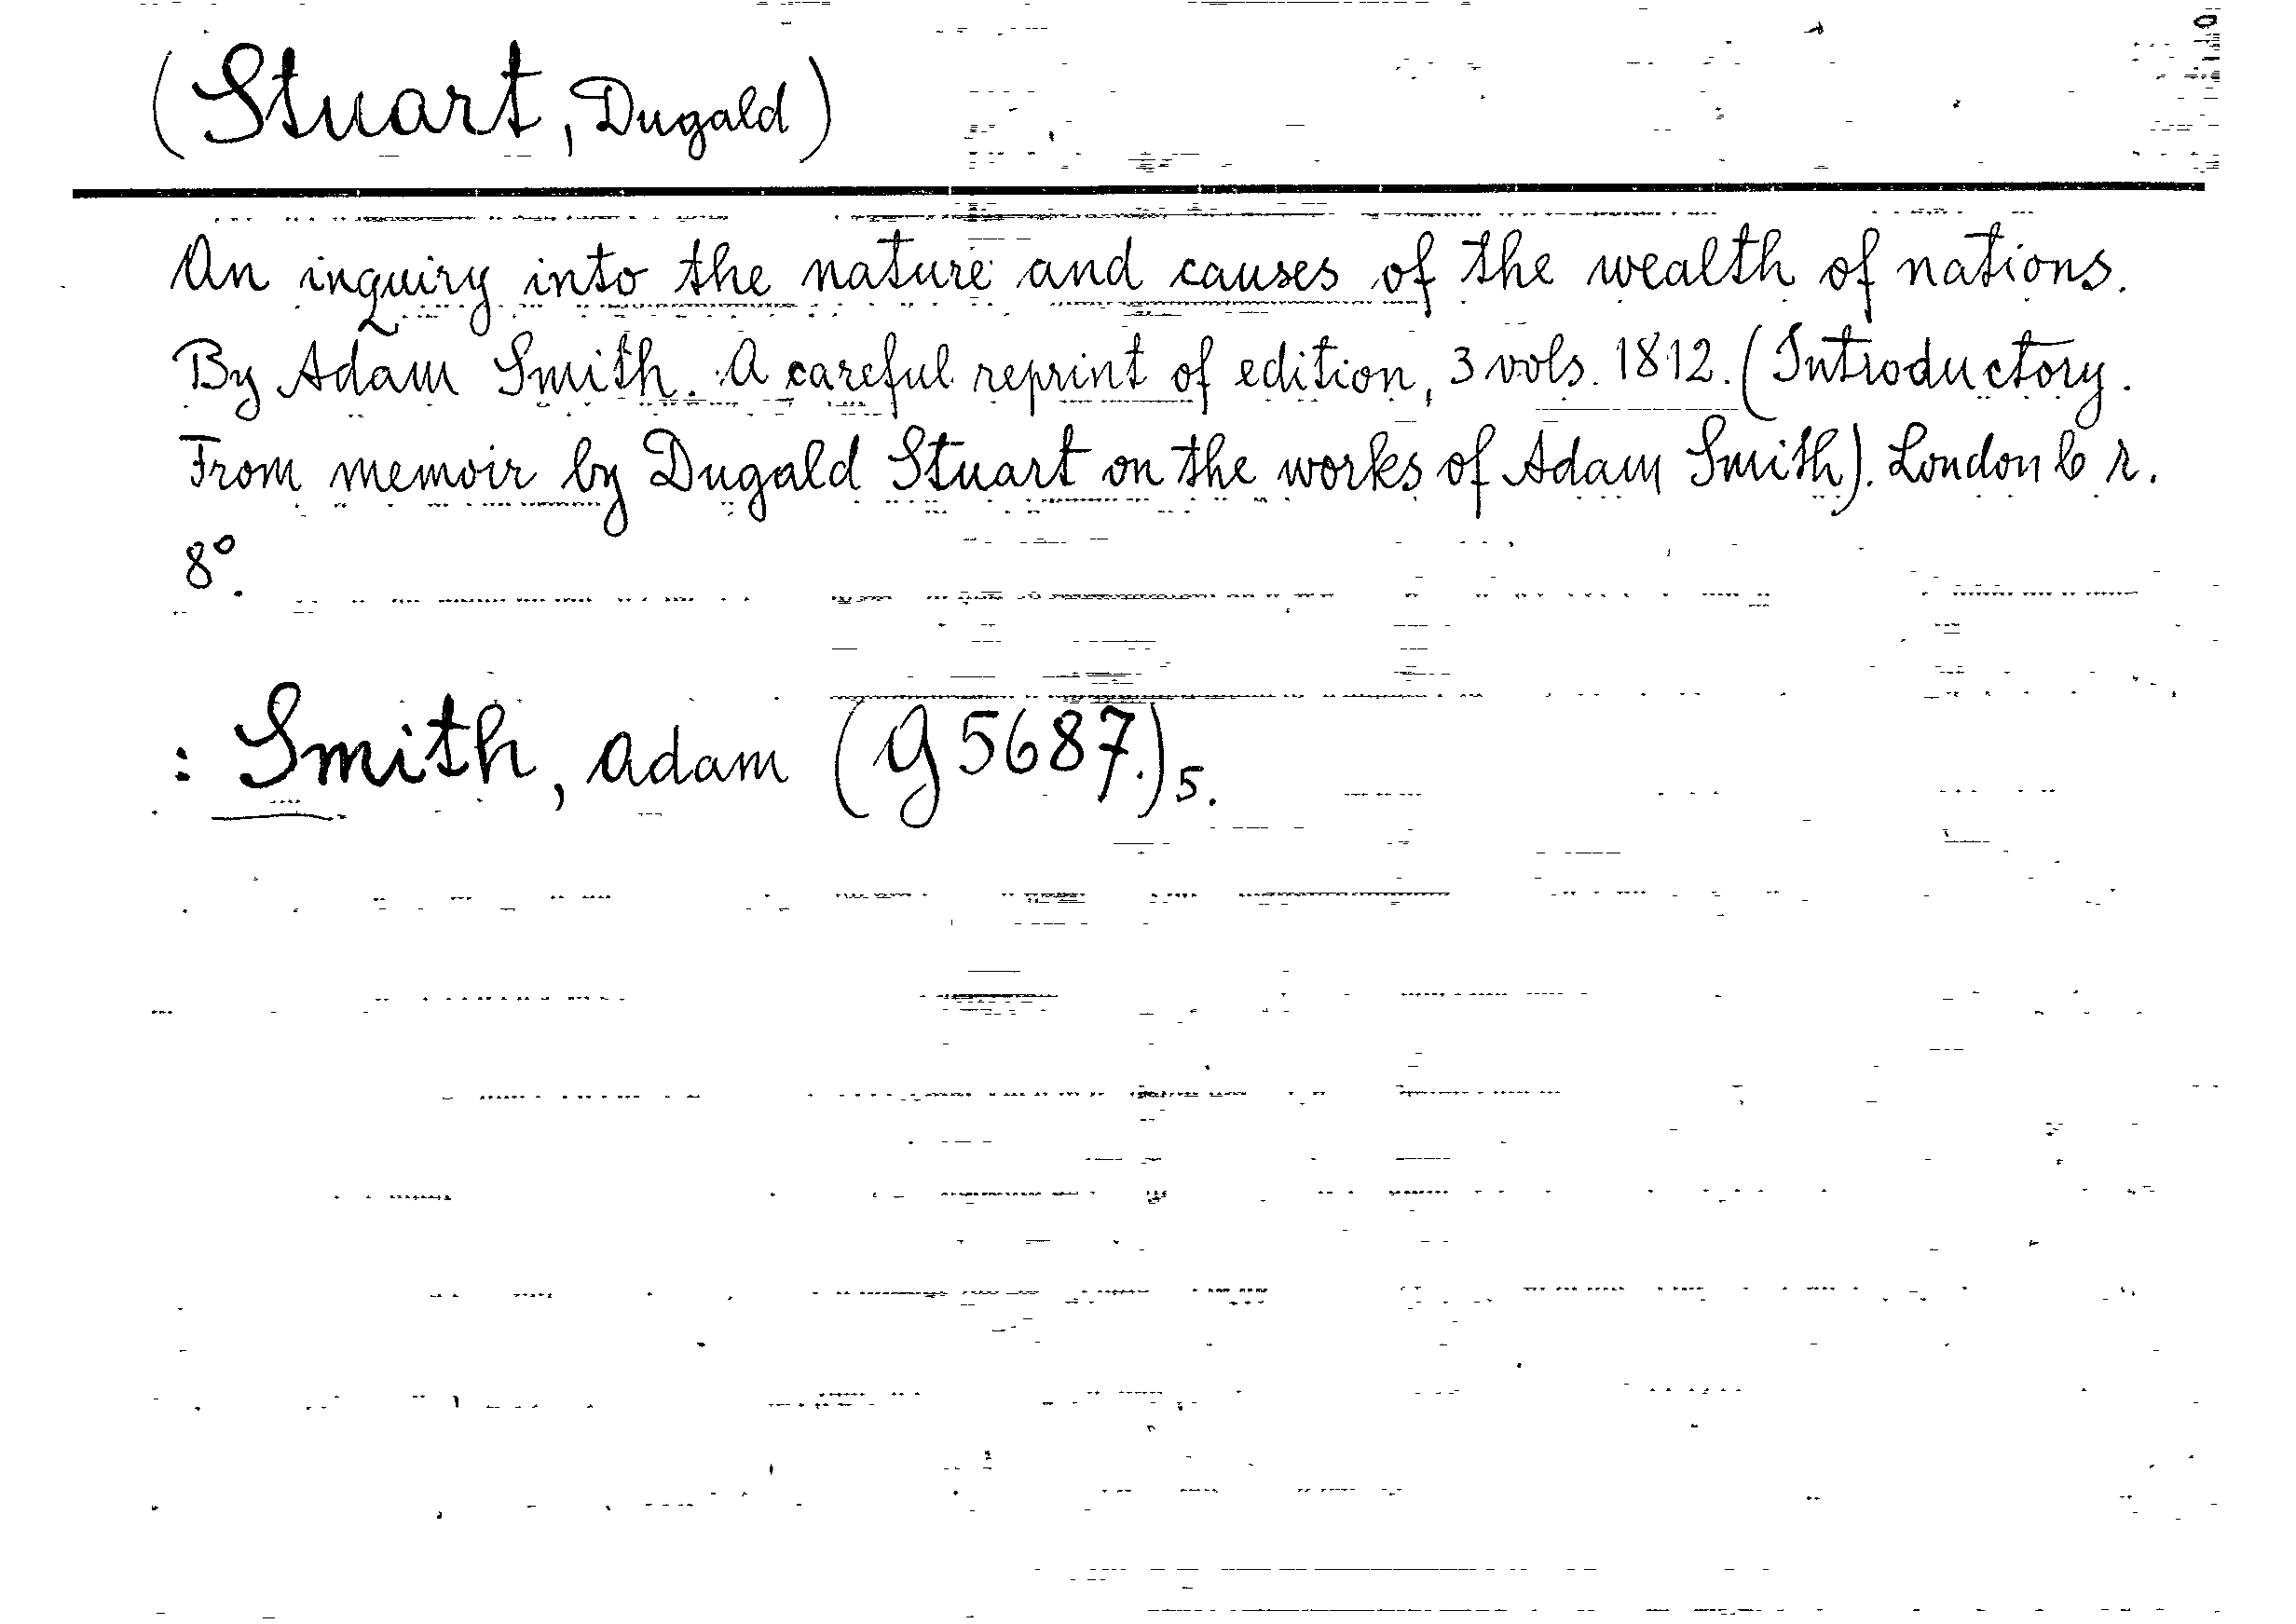 (Stuart, Dugald)
An inquiry into the nature and causes of the wealth of nations.
By Adam Smith. A careful reprint of edition, 3 vols. 1812. (Introductory.
From memoir by Dugald Stuart on the works of Adam Smith). London b r.
8º.
: Smith, Adam (G 5687.)5.